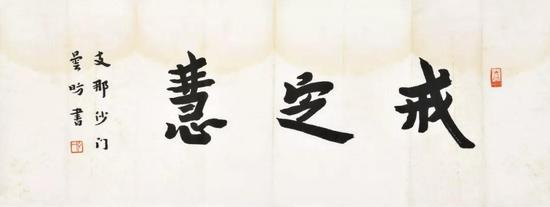 戒定慧
支那沙门
昙昉书